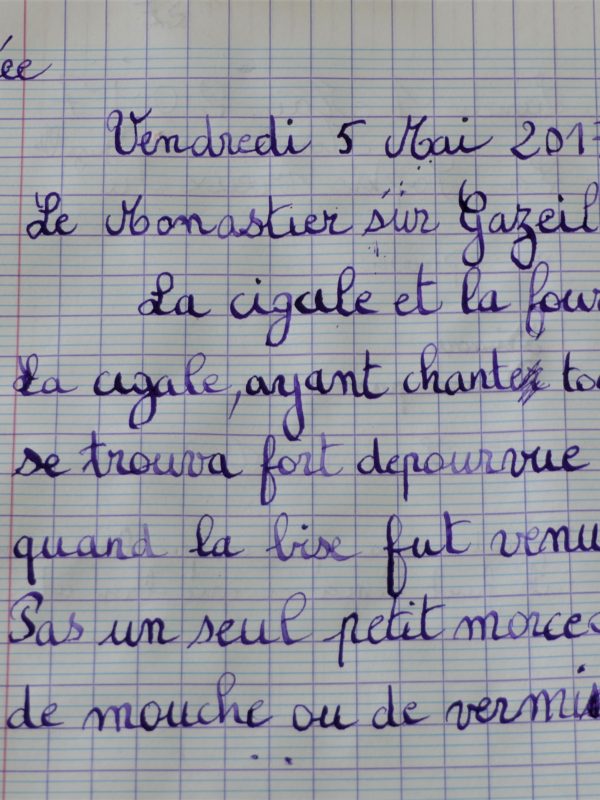 ée
Vendredi 5 Mai 201
Le Monastier sur Gazeil
La cigale et la four
La cigale, ayant chanté to
se trouva fort depourvue
quand la bise fut venu
Pas un seul petit morce
de mouche ou de vermi